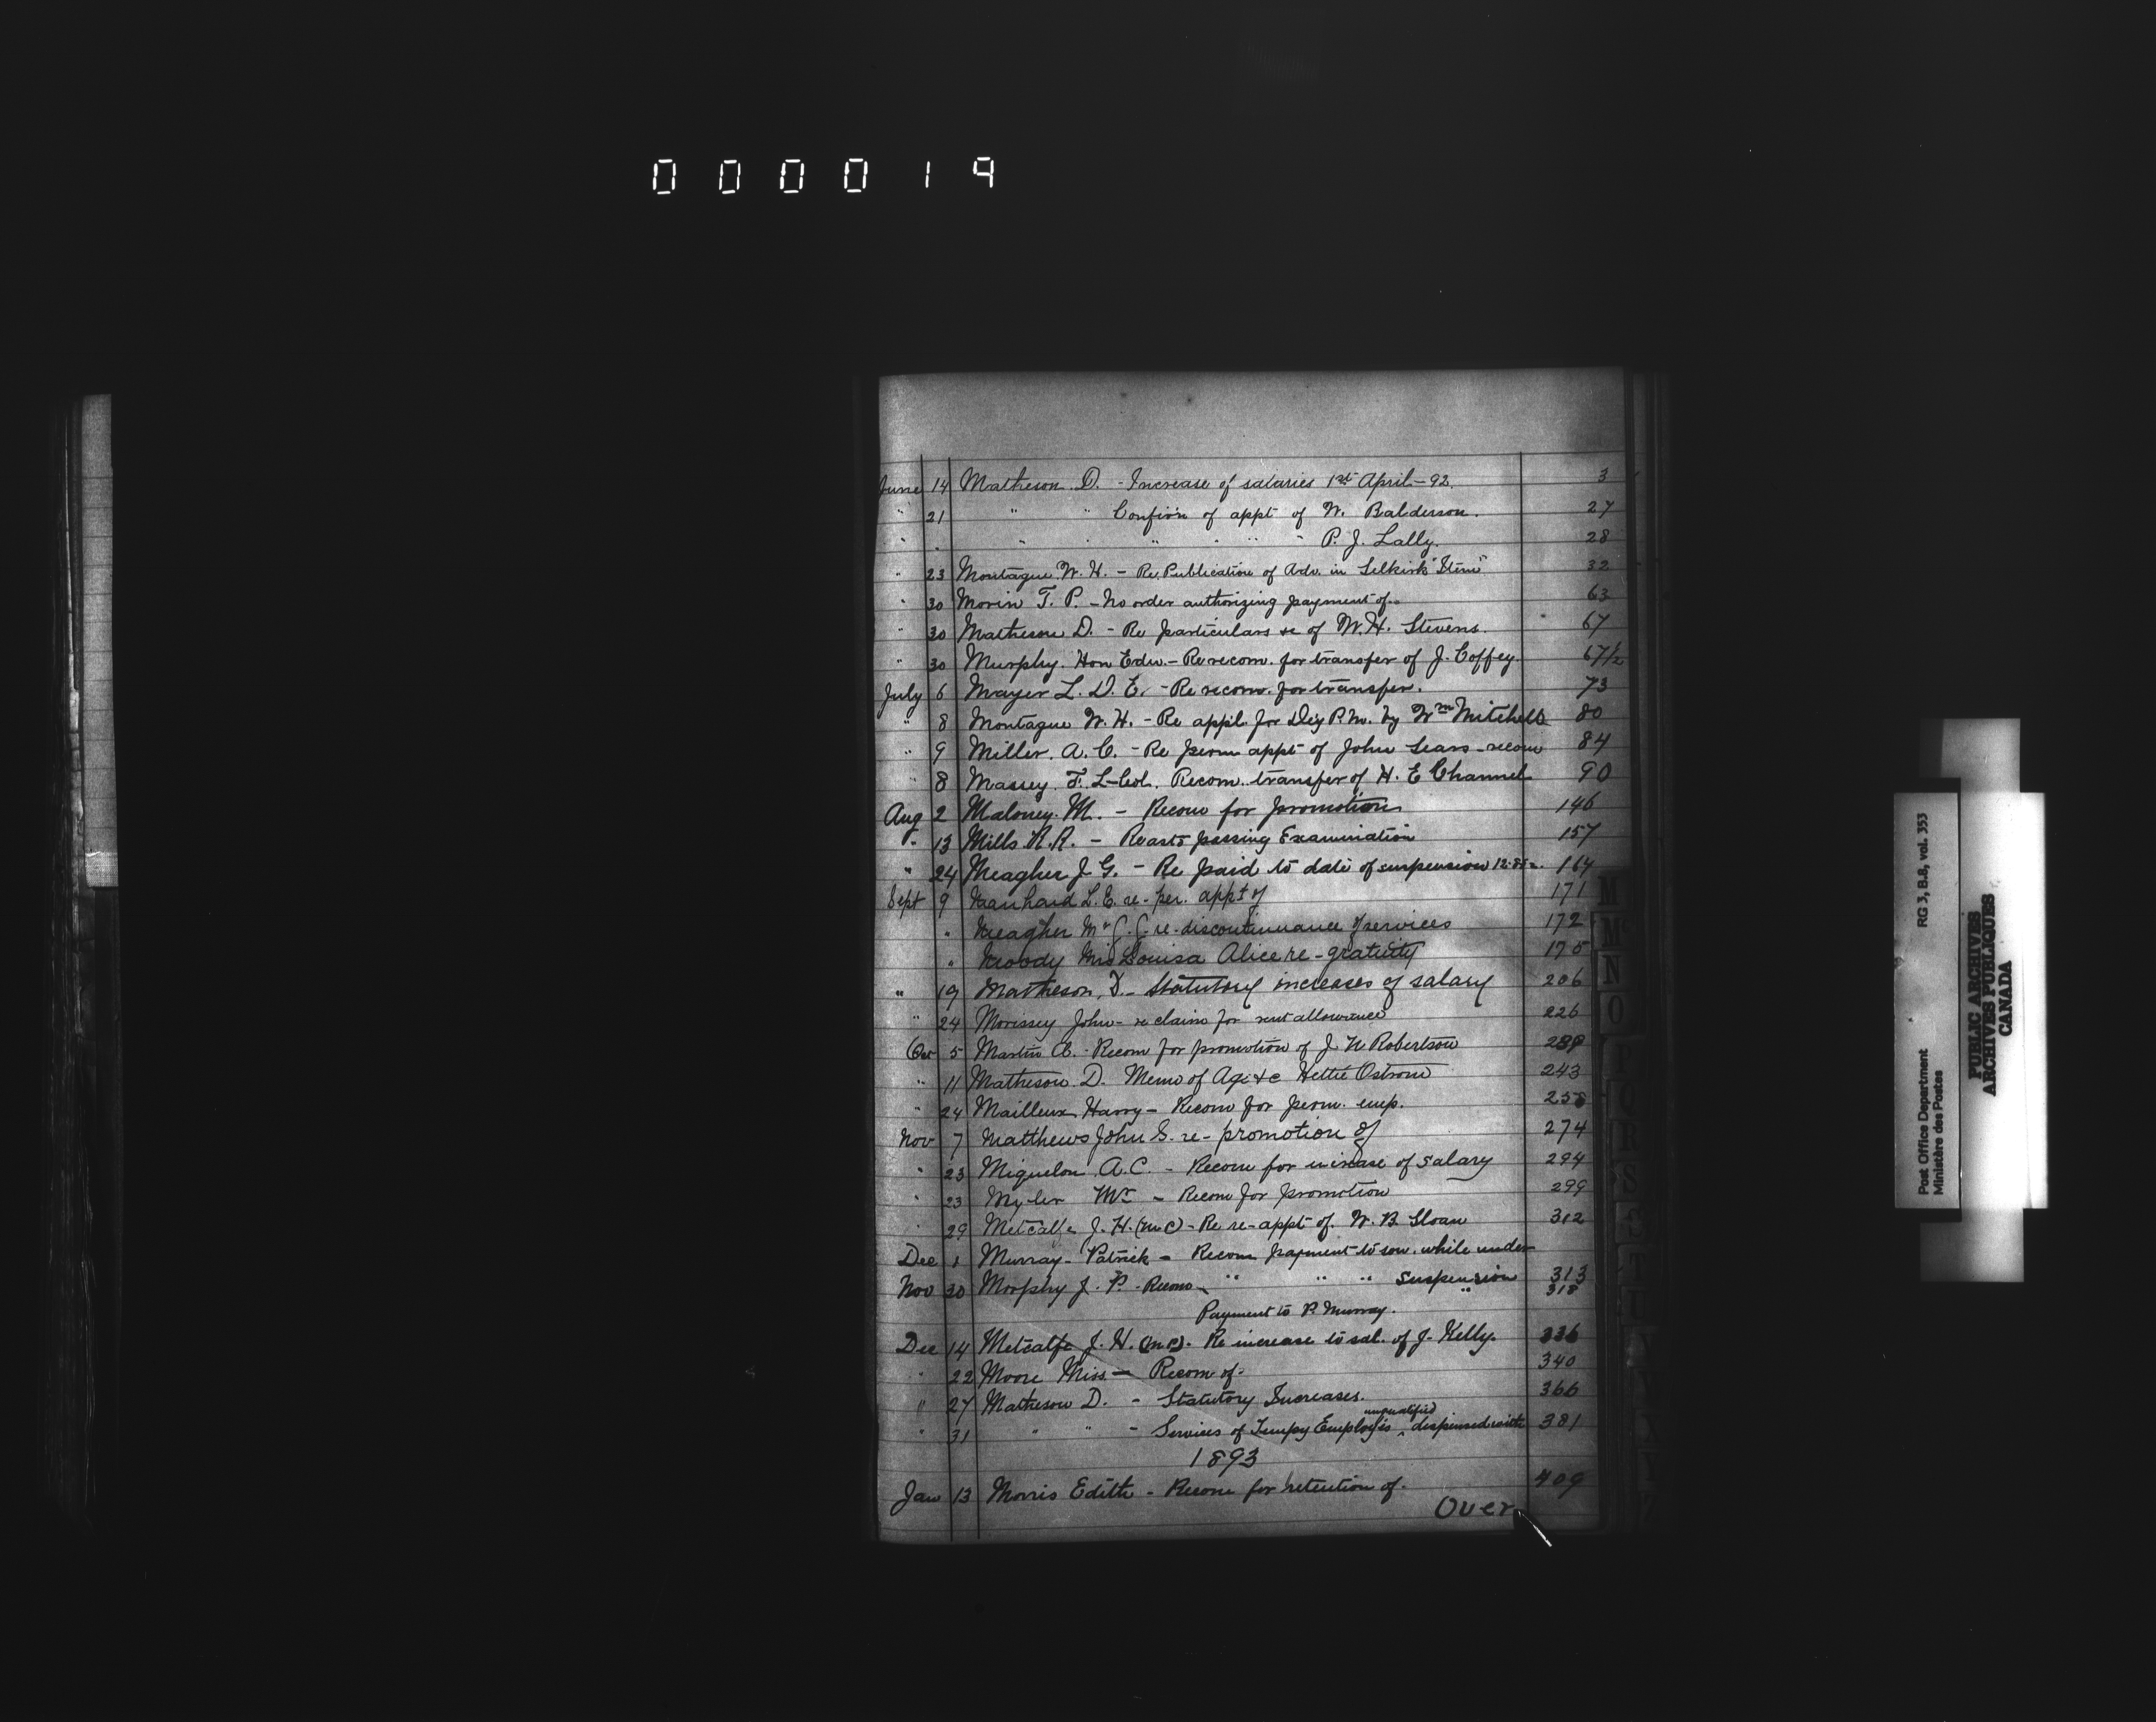 000019
June 14 Matheson. D. - Increase of salaries 1st April - 92. 3
" 21 " " Confir'n of appt of W. Balderson. 27
" " " " " " " " P. J. Lally. 28
" 23 Montague W. H. - Re. Publication of Adv. in Selkirk "Item" 32
" 30 Morin T. P. - No order authorizing payment of. 63
" 30 Matheson D. - Re particulars &c of W. H. Stevens. 67
" 30 Murphy. Hon Edw. - Re recom. for transfer of J. Coffey. 67½
July 6 Mayer L. D. E. - Re recom. for transfer. 73
" 8 Montague W. H. - Re appl. for P.M. by Wm Mitchell 80
" 9 Miller. A. C. - Re perm appt of John Sears - recom 84
" 8 Massey. F. L-Col. Recom. transfer of H. E Channel 90
Aug 2 Maloney. M. - Recom for promotion 146
" 13 Mills. R. R. - Re as to passing Examination 157
" 24 Meagher J G. - Re paid to date of suspension 164
Sept 9 Manhard L. E. re - per. appt of 171
" Meagher Mr J. G. re - discontinuance of services 172
" Moody Mrs Louisa Alice re - gratuity 175
" 19 Matheson, D. - Statutory increases of salary 206
" 24 Morissey John - re claim for rent allowance 226
Oct 5 Martin A. - Recom for promotion of J. N. Robertson
" 11 Matheson. D. Memo of Age &c Hettie Ostrom 243
" 24 Mailleux Harry - Recom for perm. emp. 258
Nov 7 Matthews John S. re - promotion of 274
" 23 Miquelon A.C. - Recom for increase of salary 294
" 23 Myler Mr - Recom for promotion 299
" 29 Metcalfe J. H. (M.C) - Re re-appt of. W. B. Sloan 312
Dec 1 Murray - Patrick - Recom payment to son. while under
Nov 30 Morphy J. P. - Recom - " " " suspension 313
" 318
Payment to P. Murray.
Dec 14 Metcalfe J. H. (M.P). Re increase to sal. of J. Kelly. 336
" 22 Moore Miss - Recom of. 340
" 27 Matheson D. - Statutory Increases. 366
" 31 " " - Services of Tempy Employés unqualified dispensed with 381
1893
Jan 13 Morris Edith - Recom for retention of. 409
Over
M
M
N
O
Post Office Department RG 3, B.8, vol. 353
Ministère des Postes
PUBLIC ARCHIVES
ARCHIVES PUBLIQUES
CANADA